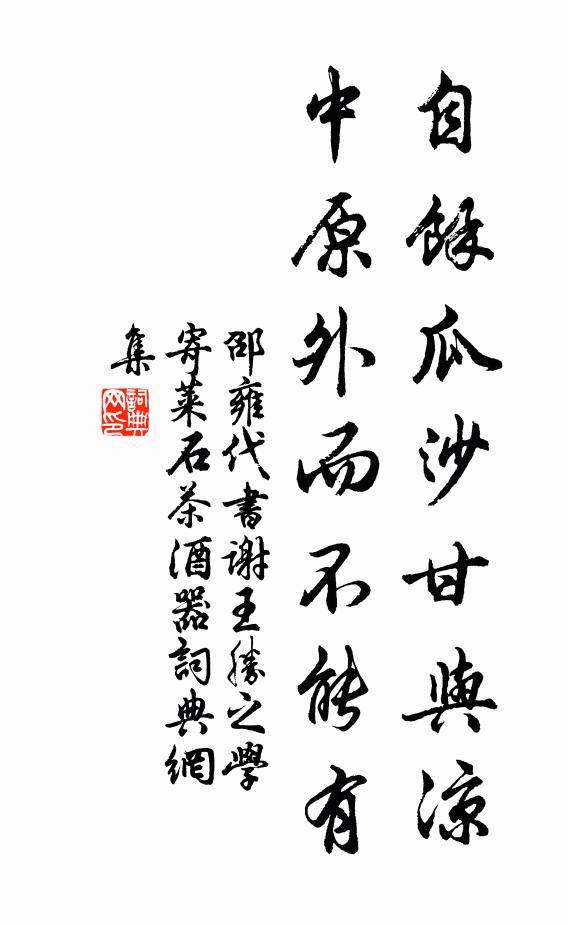 自餘瓜沙甘與涼
中原外而不能有
邵雍代書謝王勝之學
寄萊石茶酒器詞典網
集
詞典
网印